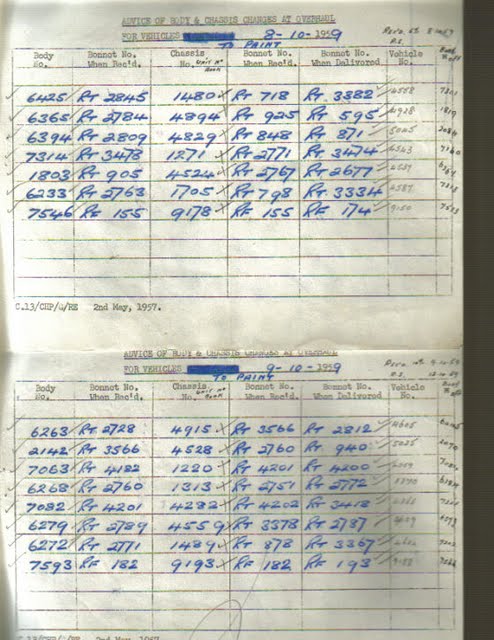 ADVICE OF BODY & CHASSIS CHANGES AT OVERHAUL
FOR VEHICLES 8-10-1959
TO PAINT
Body No. Bonnet No. When Rec'd. Chassis No. Unit No Book Bonnet No. When Rec'd. Bonnet No. When Delivered Vehicle No.
6425 RT 2845 1480 RT 718 RT 3382 4558
6365 RT 2784 4894 RT 925 RT 595 4928
6394 RT 2809 4829 RT 848 RT 871 5025
7314 RT 3478 1271 RT 2771 RT 3474
1803 RT 905 4524 RT 2767 RT 2677
6233 RT 2763 1705 RT 798 RT 3334 4587
7546 RF 155 9178 RF 155 RF 174 9150
C.13/CHP/4/RE 2nd May, 1957.
ADVICE OF BODY & CHASSIS CHANGES AT OVERHAUL
FOR VEHICLES 9-10-1959
TO PAINT
Body No. Bonnet No. When Rec'd. Chassis No. Unit No Book Bonnet No. When Rec'd. Bonnet No. When Delivered Vehicle No.
6263 RT 2728 4915 RT 3566 RT 2812 4605
2142 RT 3566 4528 RT 2760 RT 940 5025
7063 RT 4182 1220 RT 4201 RT 4200
6268 RT 2760 1313 RT 2751 RT 2772
7082 RT 4201 4282 RT 4202 RT 3418
6279 RT 2789 4559 RT 3378 RT 2787
6272 RT 2771 1489 RT 878 RT 3367
7593 RF 182 9193 RF 182 RF 193